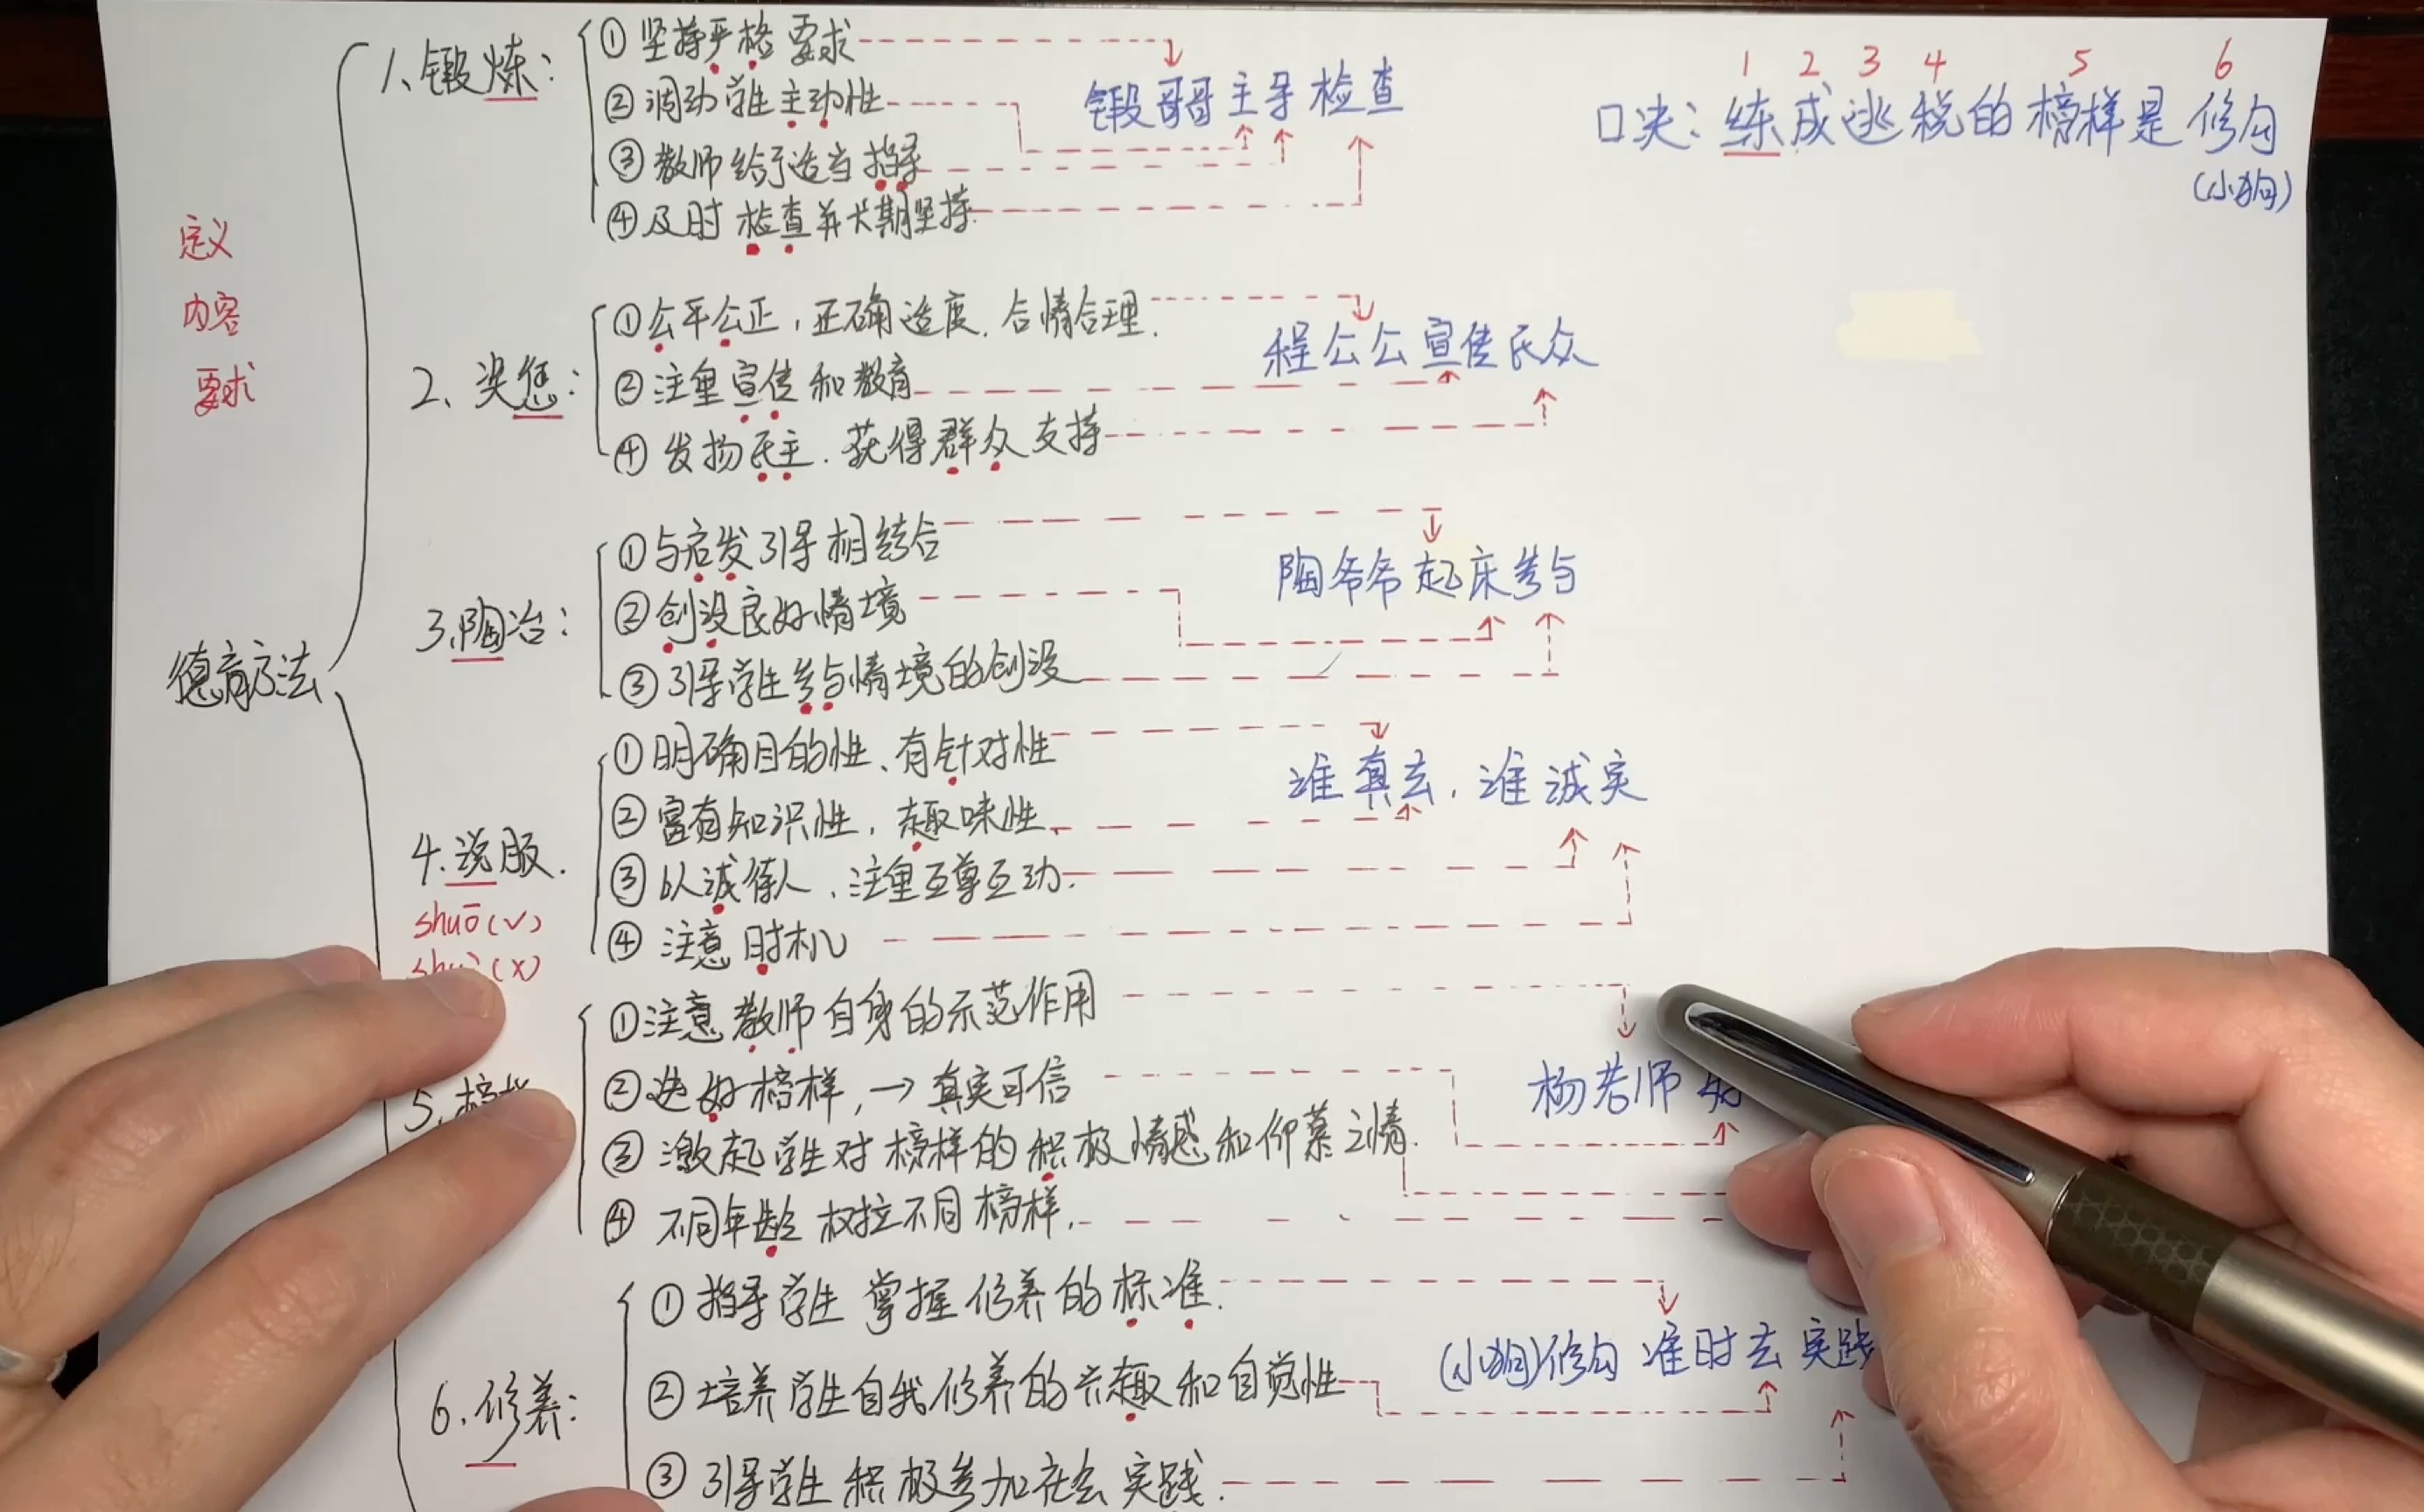 口决: 练成逃税的榜样是修勾
1 2 3 4 5 6
(小狗)
定义
内容
要求
德育方法
1、锻炼:
① 坚持严格要求
② 调动学生主动性
③ 教师给予适当指导
④ 及时检查并长期坚持
锻哥哥主导检查
2、奖惩:
① 公平公正,正确适度.合情合理.
② 注重宣传和教育
④ 发扬民主.获得群众支持
程公公宣传民众
3.陶冶:
① 与启发引导相结合
② 创设良好情境
③ 引导学生参与情境的创设
陶爷爷起床参与
4.说服.
shuō(√)
(×)
① 明确目的性、有针对性
② 富有知识性,趣味性.
③ 以诚待人,注重互尊互动.
④ 注意时机
谁真去,谁诚实
5.榜
① 注意教师自身的示范作用
② 选好榜样,→真实可信
③ 激起学生对榜样的积极情感和仰慕之情.
④ 不同年龄树立不同榜样.
杨老师
6.修养:
① 指导学生掌握修养的标准.
② 培养学生自我修养的兴趣和自觉性
③ 引导学生积极参加社会实践.
(小狗)修勾准时去实践